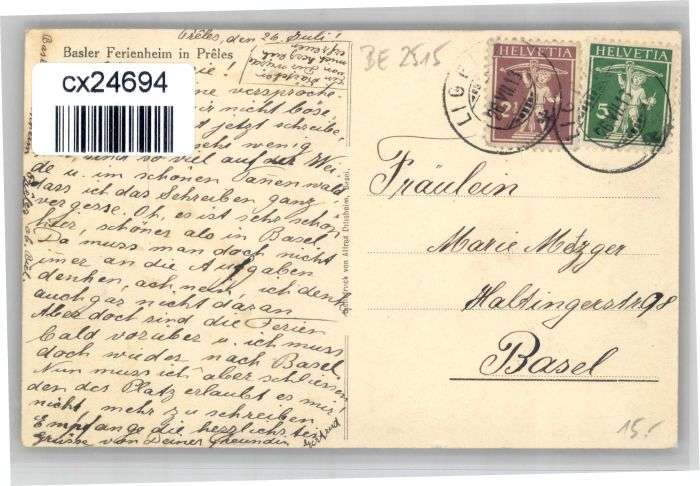 Prêles, den 26. Juli!
Basler Ferienheim in Prêles
cx24694
ie!
ne versproche
mir nicht böse,
jetzt schreibe
wenig
sind so viel auf der Wei-
de u. im schönen Tannenwald
dass ich das Schreiben ganz
vergesse. Oh, es ist sehr schön
hier, schöner als in Basel
Da muss man doch nicht
imer an die Aufgaben
denken, ach nein, ich denke
auch gar nicht daran
Aber doch sind die Ferien
bald vorüber u. ich muss
doch wieder nach Basel
Nun muss ich aber schliessen
den der Platz erlaubt es mir
nicht mehr zu schreiben.
Empfange die herzlichsten
Grüsse von Deiner Freundin
Gertrud
BE 2515
HELVETIA
HELVETIA
2
5
Fräulein
Marie Mézger
Haltingerstr 98
Basel
15.-